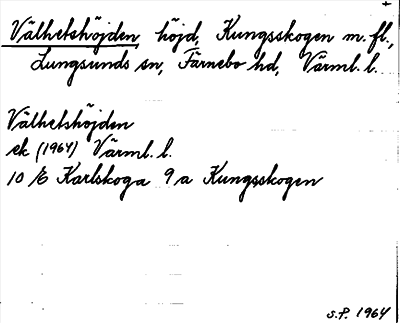 +
Välhetshöjden, höjd, Kungsskogen m. fl.,
Lungsunds sn, Färnebo hd, Värml. l.
Välhetshöjden
ek (1964) Värml. l.
10 E Karlskoga 9 a Kungsskogen
S.P. 1964